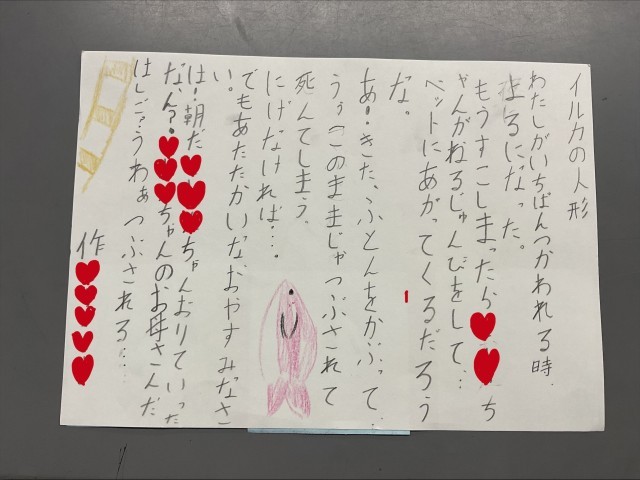 イルカの人形
わたしがいちばんつかわれる時.
よるになった。
もうすこしまったらち
ゃんがねるじゅんびをして…
ベットにあがってくるだろう
な。
あ!きた、ふとんをかぶって…
うぅこのままじゃつぶされて
死んてしまう。
にげなければ…。
でもあたたかいなおやすみなさ
い。
は!朝だちゃんおりていった
なん?ちゃんのお母さんだ
はしご?うわぁつぶされる……
作